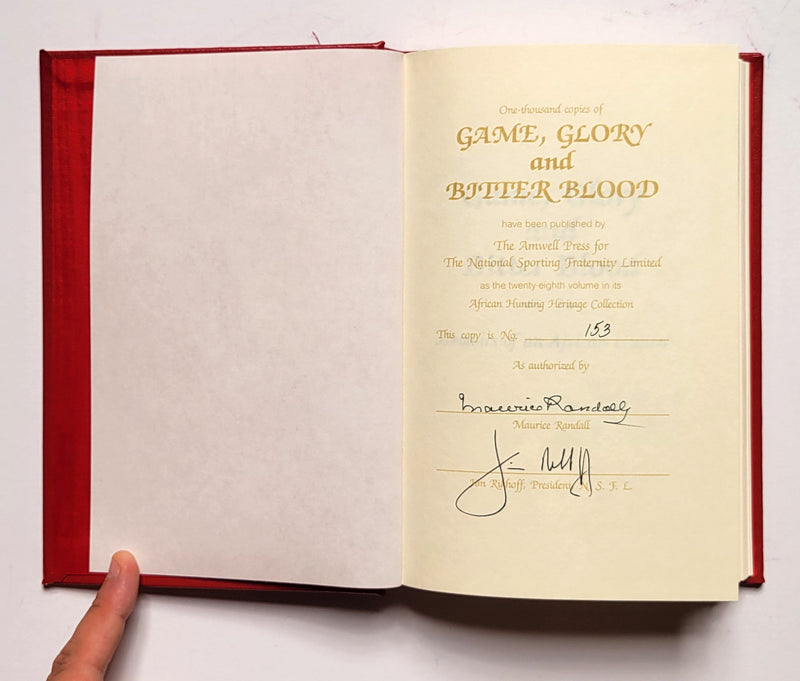 One-thousand copies of
GAME, GLORY
and
BITTER BLOOD
have been published by
The Amwell Press for
The National Sporting Fraternity Limited
as the twenty-eighth volume in its
African Hunting Heritage Collection
This copy is No. 153
As authorized by
Maurice Randall
Maurice Randall
Jim Rikhoff
Jim Rikhoff, President, N. S. F. L.